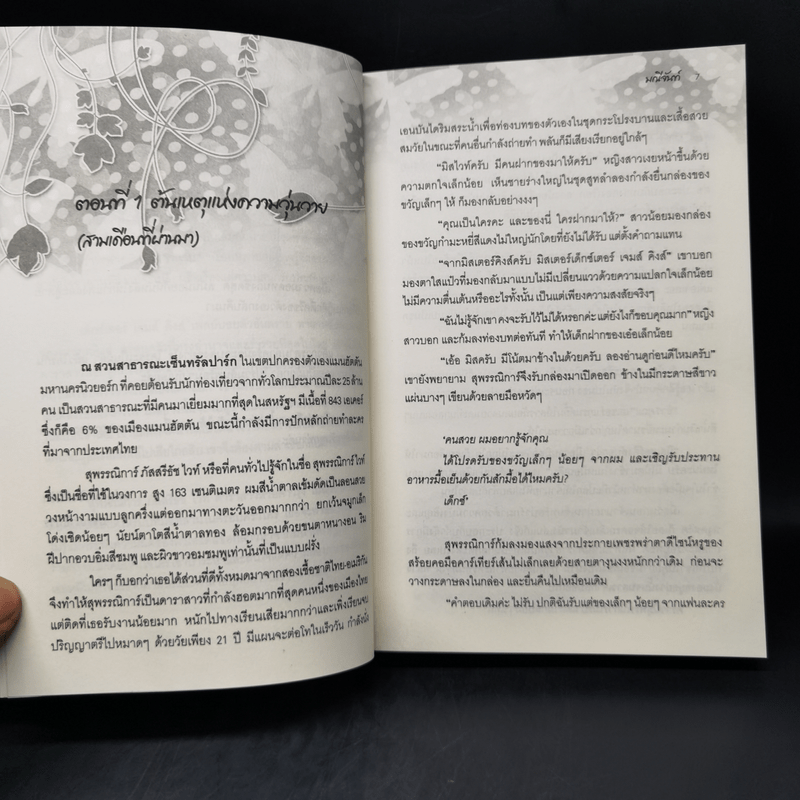 ตอนที่ 1 ต้นเหตุแห่งความวุ่นวาย
(สามเดือนที่ผ่านมา)
ณ สวนสาธารณะเซ็นทรัลปาร์ก ในเขตปกครองตัวเองแมนฮัตตัน
มหานครนิวยอร์ก ที่คอยต้อนรับนักท่องเที่ยวจากทั่วโลกประมาณปีละ 25 ล้าน
คน เป็นสวนสาธารณะที่มีคนมาเยี่ยมมากที่สุดในสหรัฐฯ มีเนื้อที่ 843 เอเคอร์
ซึ่งก็คือ 6% ของเมืองแมนฮัตตัน ขณะนี้กำลังมีการปักหลักถ่ายทำละคร
ที่มาจากประเทศไทย
สุพรรณิการ์ ภัสสรีธัช ไวท์ หรือที่คนทั่วไปรู้จักในชื่อ สุพรรณิการ์ ไวท์
ซึ่งเป็นชื่อที่ใช้ในวงการ สูง 163 เซนติเมตร ผมสีน้ำตาลเข้มดัดเป็นลอนสวย
วงหน้างามแบบลูกครึ่งแต่ออกมาทางตะวันออกมากกว่า ยกเว้นจมูกเล็ก
โด่งเชิดน้อยๆ นัยน์ตาโตสีน้ำตาลทอง ล้อมกรอบด้วยขนตาหนางอน ริม
ฝีปากอวบอิ่มสีชมพู และผิวขาวอมชมพูเท่านั้นที่เป็นแบบฝรั่ง
ใครๆ ก็บอกว่าเธอได้ส่วนที่ดีทั้งหมดมาจากสองเชื้อชาติไทย-อเมริกัน
จึงทำให้สุพรรณิการ์เป็นดาราสาวที่กำลังฮอตมากที่สุดคนหนึ่งของเมืองไทย
แต่ติดที่เธอรับงานน้อยมาก หนักไปทางเรียนเสียมากกว่าและเพิ่งเรียนจบ
ปริญญาตรีไปหมาดๆ ด้วยวัยเพียง 21 ปี มีแผนจะต่อโทในเร็ววัน กำลังนั่ง
มณีจันท์ 7
เอนบันไดริมสระน้ำเพื่อท่องบทของตัวเองในชุดกระโปรงบานและเสื้อสวย
สมวัยในขณะที่คนอื่นกำลังถ่ายทำ พลันก็มีเสียงเรียกอยู่ใกล้ๆ
"มิสไวท์ครับ มีคนฝากของมาให้ครับ" หญิงสาวเงยหน้าขึ้นด้วย
ความตกใจเล็กน้อย เห็นชายร่างใหญ่ในชุดสูทลำลองกำลังยื่นกล่องของ
ขวัญเล็กๆ ให้ ก็มองกลับอย่างงงๆ
"คุณเป็นใครคะ และของนี่ ใครฝากมาให้?" สาวน้อยมองกล่อง
ของขวัญกำมะหยี่สีแดงไม่ใหญ่นักโดยที่ยังไม่ได้รับ แต่ตั้งคำถามแทน
"จากมิสเตอร์คิงส์ครับ มิสเตอร์เด็กซ์เตอร์ เจมส์ คิงส์" เขาบอก
มองตาใสแป๋วที่มองกลับมาแบบไม่มีเปลี่ยนแววด้วยความแปลกใจเล็กน้อย
ไม่มีความตื่นเต้นหรืออะไรทั้งนั้น เป็นแต่เพียงความสงสัยจริงๆ
"ฉันไม่รู้จักเขา คงจะรับไว้ไม่ได้หรอกค่ะ แต่ยังไงก็ขอบคุณมาก" หญิง
สาวบอก และก้มลงท่องบทต่อทันที ทำให้เด็กฝากของเอ๋อเล็กน้อย
"เอ้อ มิสครับ มีโน้ตมาข้างในด้วยครับ ลองอ่านดูก่อนดีไหมครับ"
เขายังพยายาม สุพรรณิการ์จึงรับกล่องมาเปิดออก ข้างในมีกระดาษสีขาว
แผ่นบางๆ เขียนด้วยลายมือหวัดๆ
'คนสวย ผมอยากรู้จักคุณ
ได้โปรดรับของขวัญเล็กๆ น้อยๆ จากผม และเชิญรับประทาน
อาหารมื้อเย็นด้วยกันสักมื้อได้ไหมครับ?
เด็กซ์'
สุพรรณิการ์ก้มลงมองแสงจากประกายเพชรพร่าตาดีไซน์หรูของ
สร้อยคอมือคาร์เทียร์เส้นไม่เล็กเลยด้วยสายตางุนงงหนักกว่าเดิม ก่อนจะ
วางกระดาษลงในกล่อง และยื่นคืนไปเหมือนเดิม
"คำตอบเดิมค่ะ ไม่รับ ปกติฉันรับแต่ของเล็กๆ น้อยๆ จากแฟนละคร